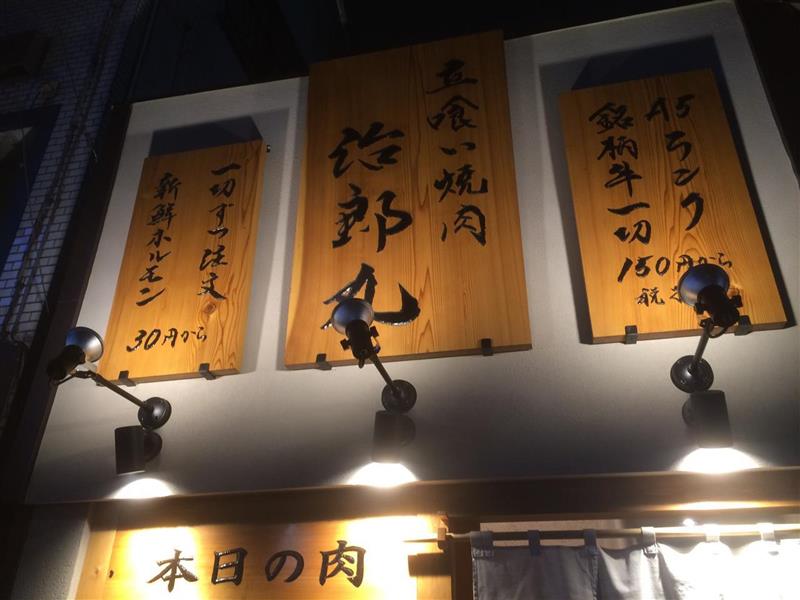 立喰い焼肉
治郎丸
A5ランク
銘柄牛一切
150円から
税
一切ずつ注文
新鮮ホルモン
30円から
本日の肉